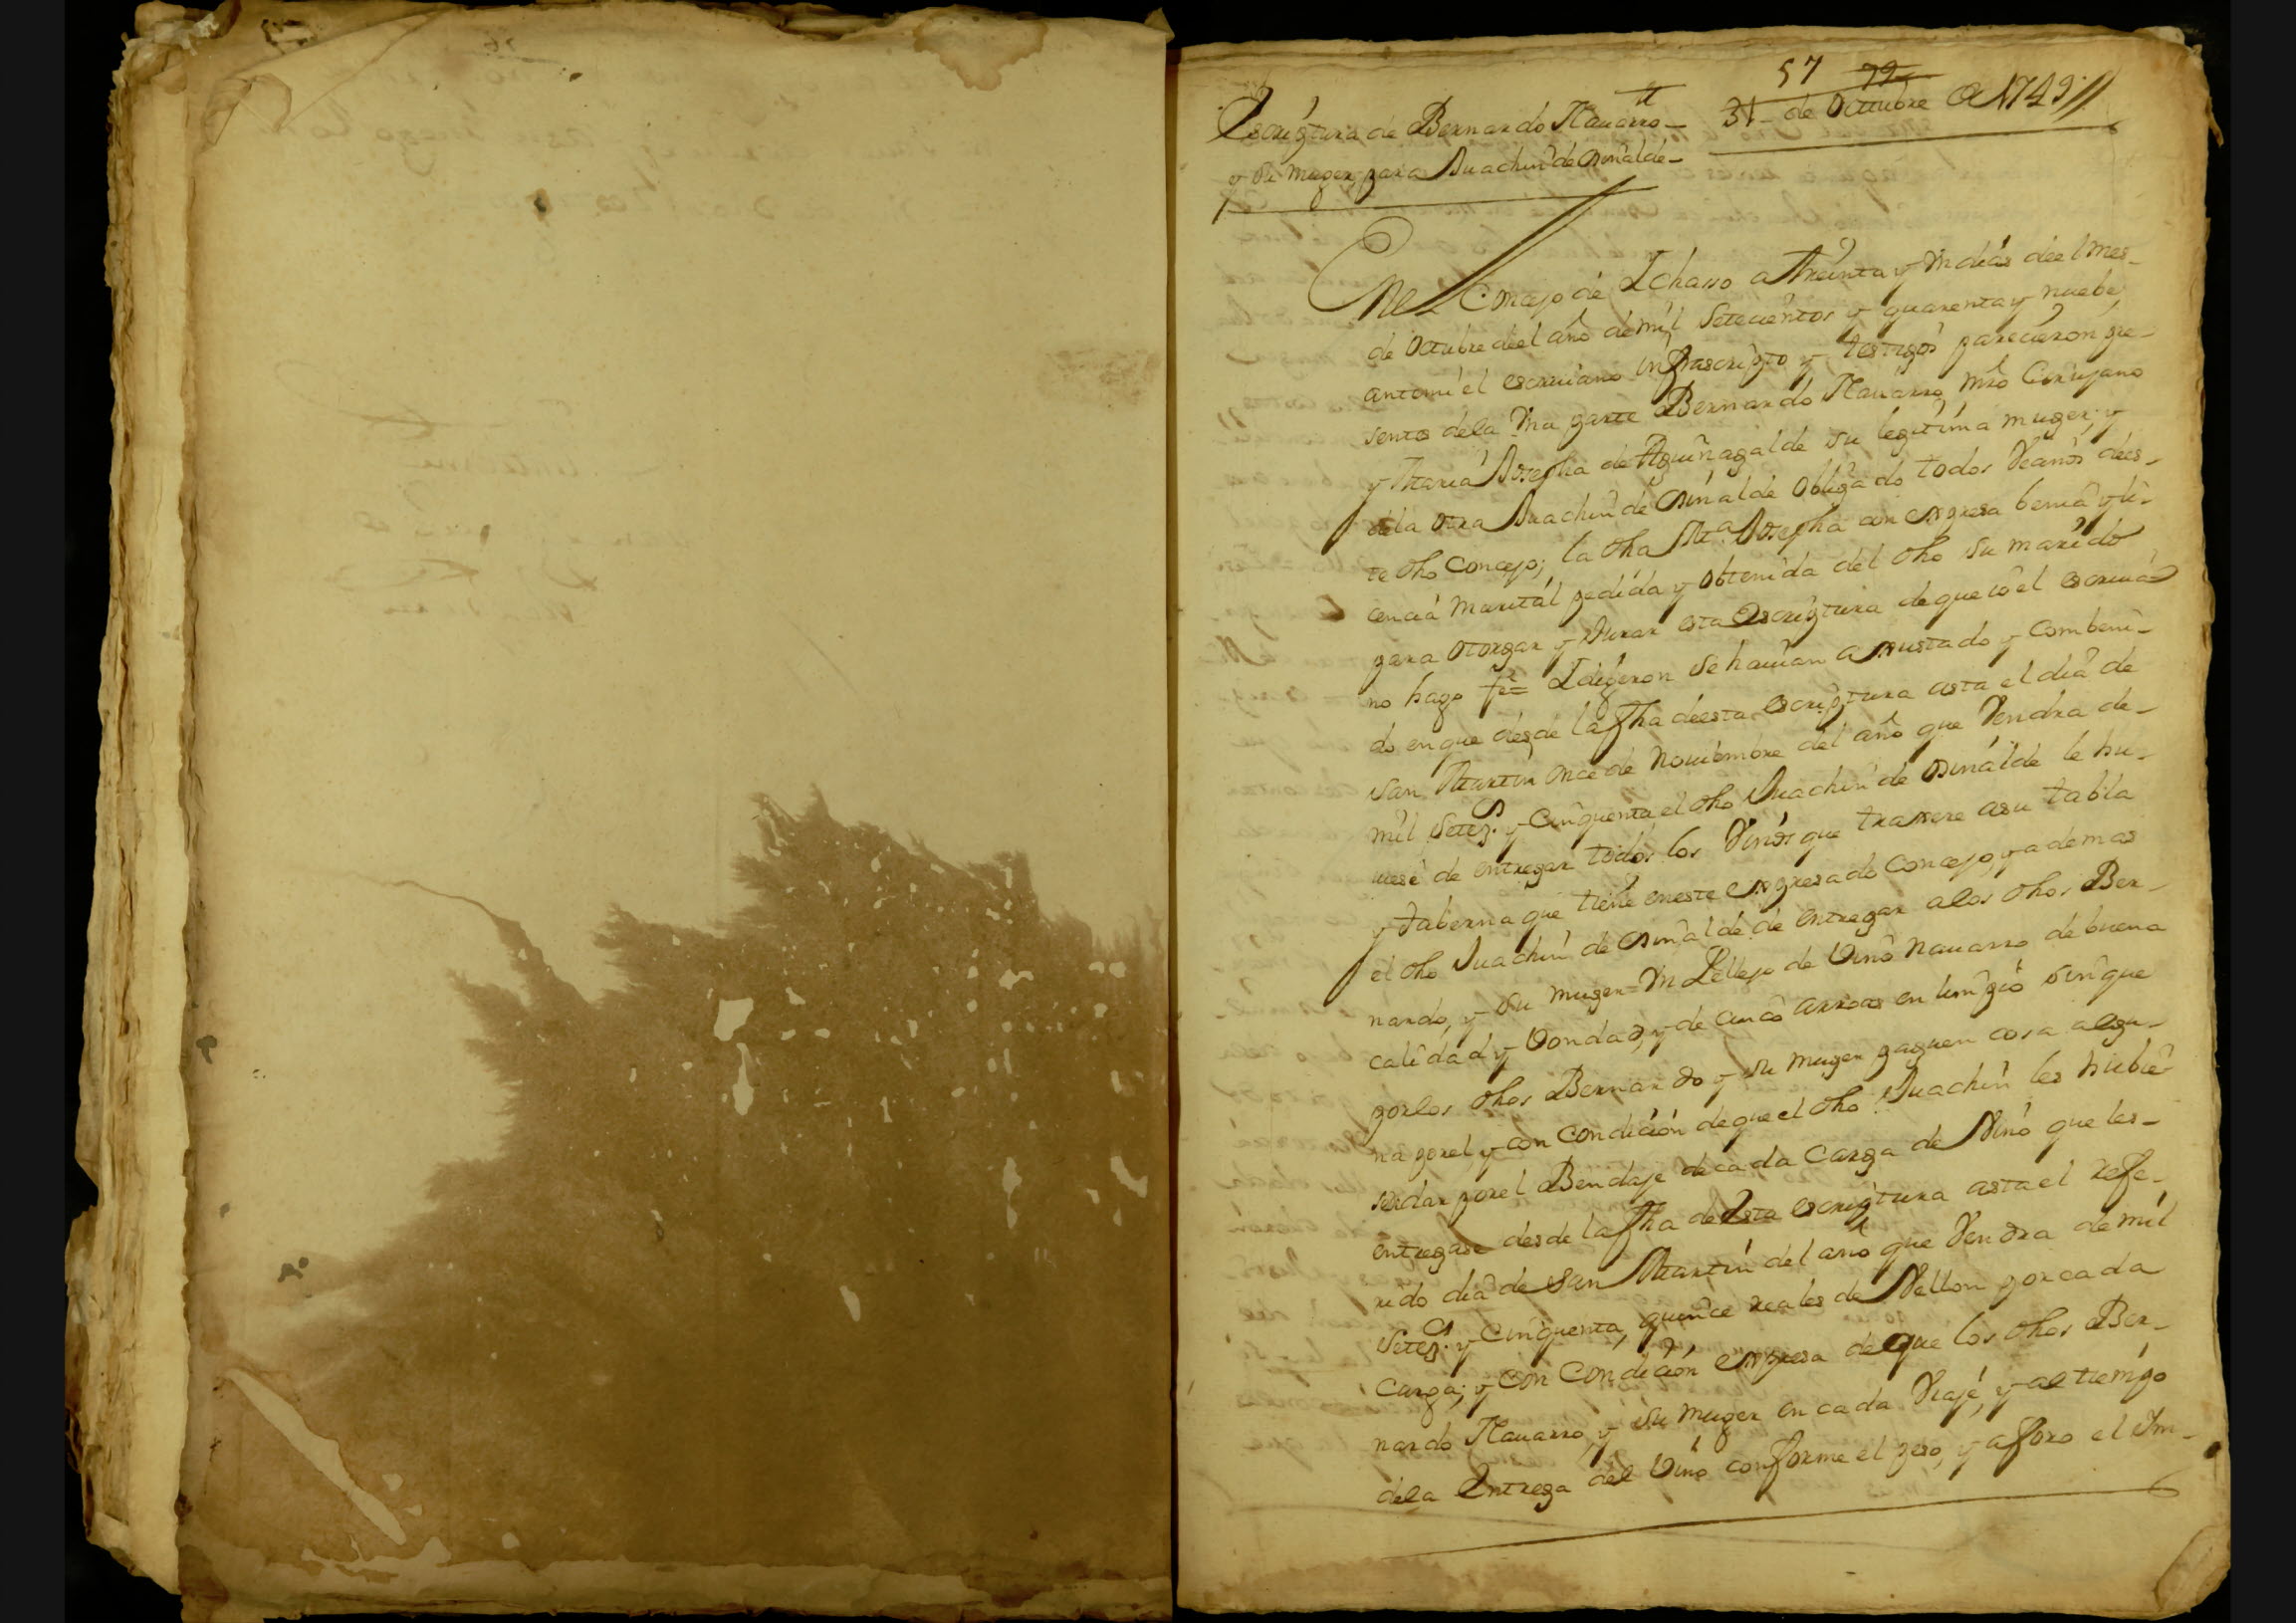 57 79
Escriptura de Bernardo Nauarro
31 de Octtubre de 1749
y su muger para Juachin de Osinalde
En el Concejo de Icharro a treinta y Un dias deel mes
de Octubre deel año de mil setecientos y quarenta y nuebe,
ante mi el escriuano infrascripto y testigos parecieron pre-
sentes de la Una parte Bernardo Nauarro Mro Cirujano
y Maria Josepha de Aguinagalde su legitima muger; y
de la otra Juachin de Osinalde obligado todos Vecinos des-
te dho Concejo; la dha Ma Josepha con expresa benia y li-
cencia marital pedida y obtenida del dho su marido
para otorgar y Jurar esta escriptura de que io el escriua-
no hago fe= I digeron se hauian ajustado y combeni-
do en que desde la fha de esta escriptura asta el dia de
San Martin once de Nouiembre del año que Vendra de
mil setez.s y Cinquenta el dho Juachin de Osinalde le hu-
uiese de entregar todos los Vinos que traxere a su tabla
y taberna que tiene en este expresado Concejo, y ademas
el dho Juachin de Osinalde de entregar a los dhos Ber-
nardo, y su muger= Un Pellejo de Vino Nauarro de buena
calidad y bondad, y de cinco arroas en limpio sin que
por los dhos Bernardo y su muger paguen cosa algu-
na por el y con condicion de que el dho Juachin les hubie
se dar por el Bendaje de cada Carga de Vino que les
entregase desde la fha de esta escriptura asta el refe-
rido dia de San Martin del año que Vendra de mil
Setez.s y Cinquenta, quince reales de Vellon por cada
Carga; y con Condicion expresa de que los dhos Ber-
nardo Nauarro, y su muger en cada Viaje, y al tiempo
de la Entrega del Vino conforme el peso, y aforo el Im-